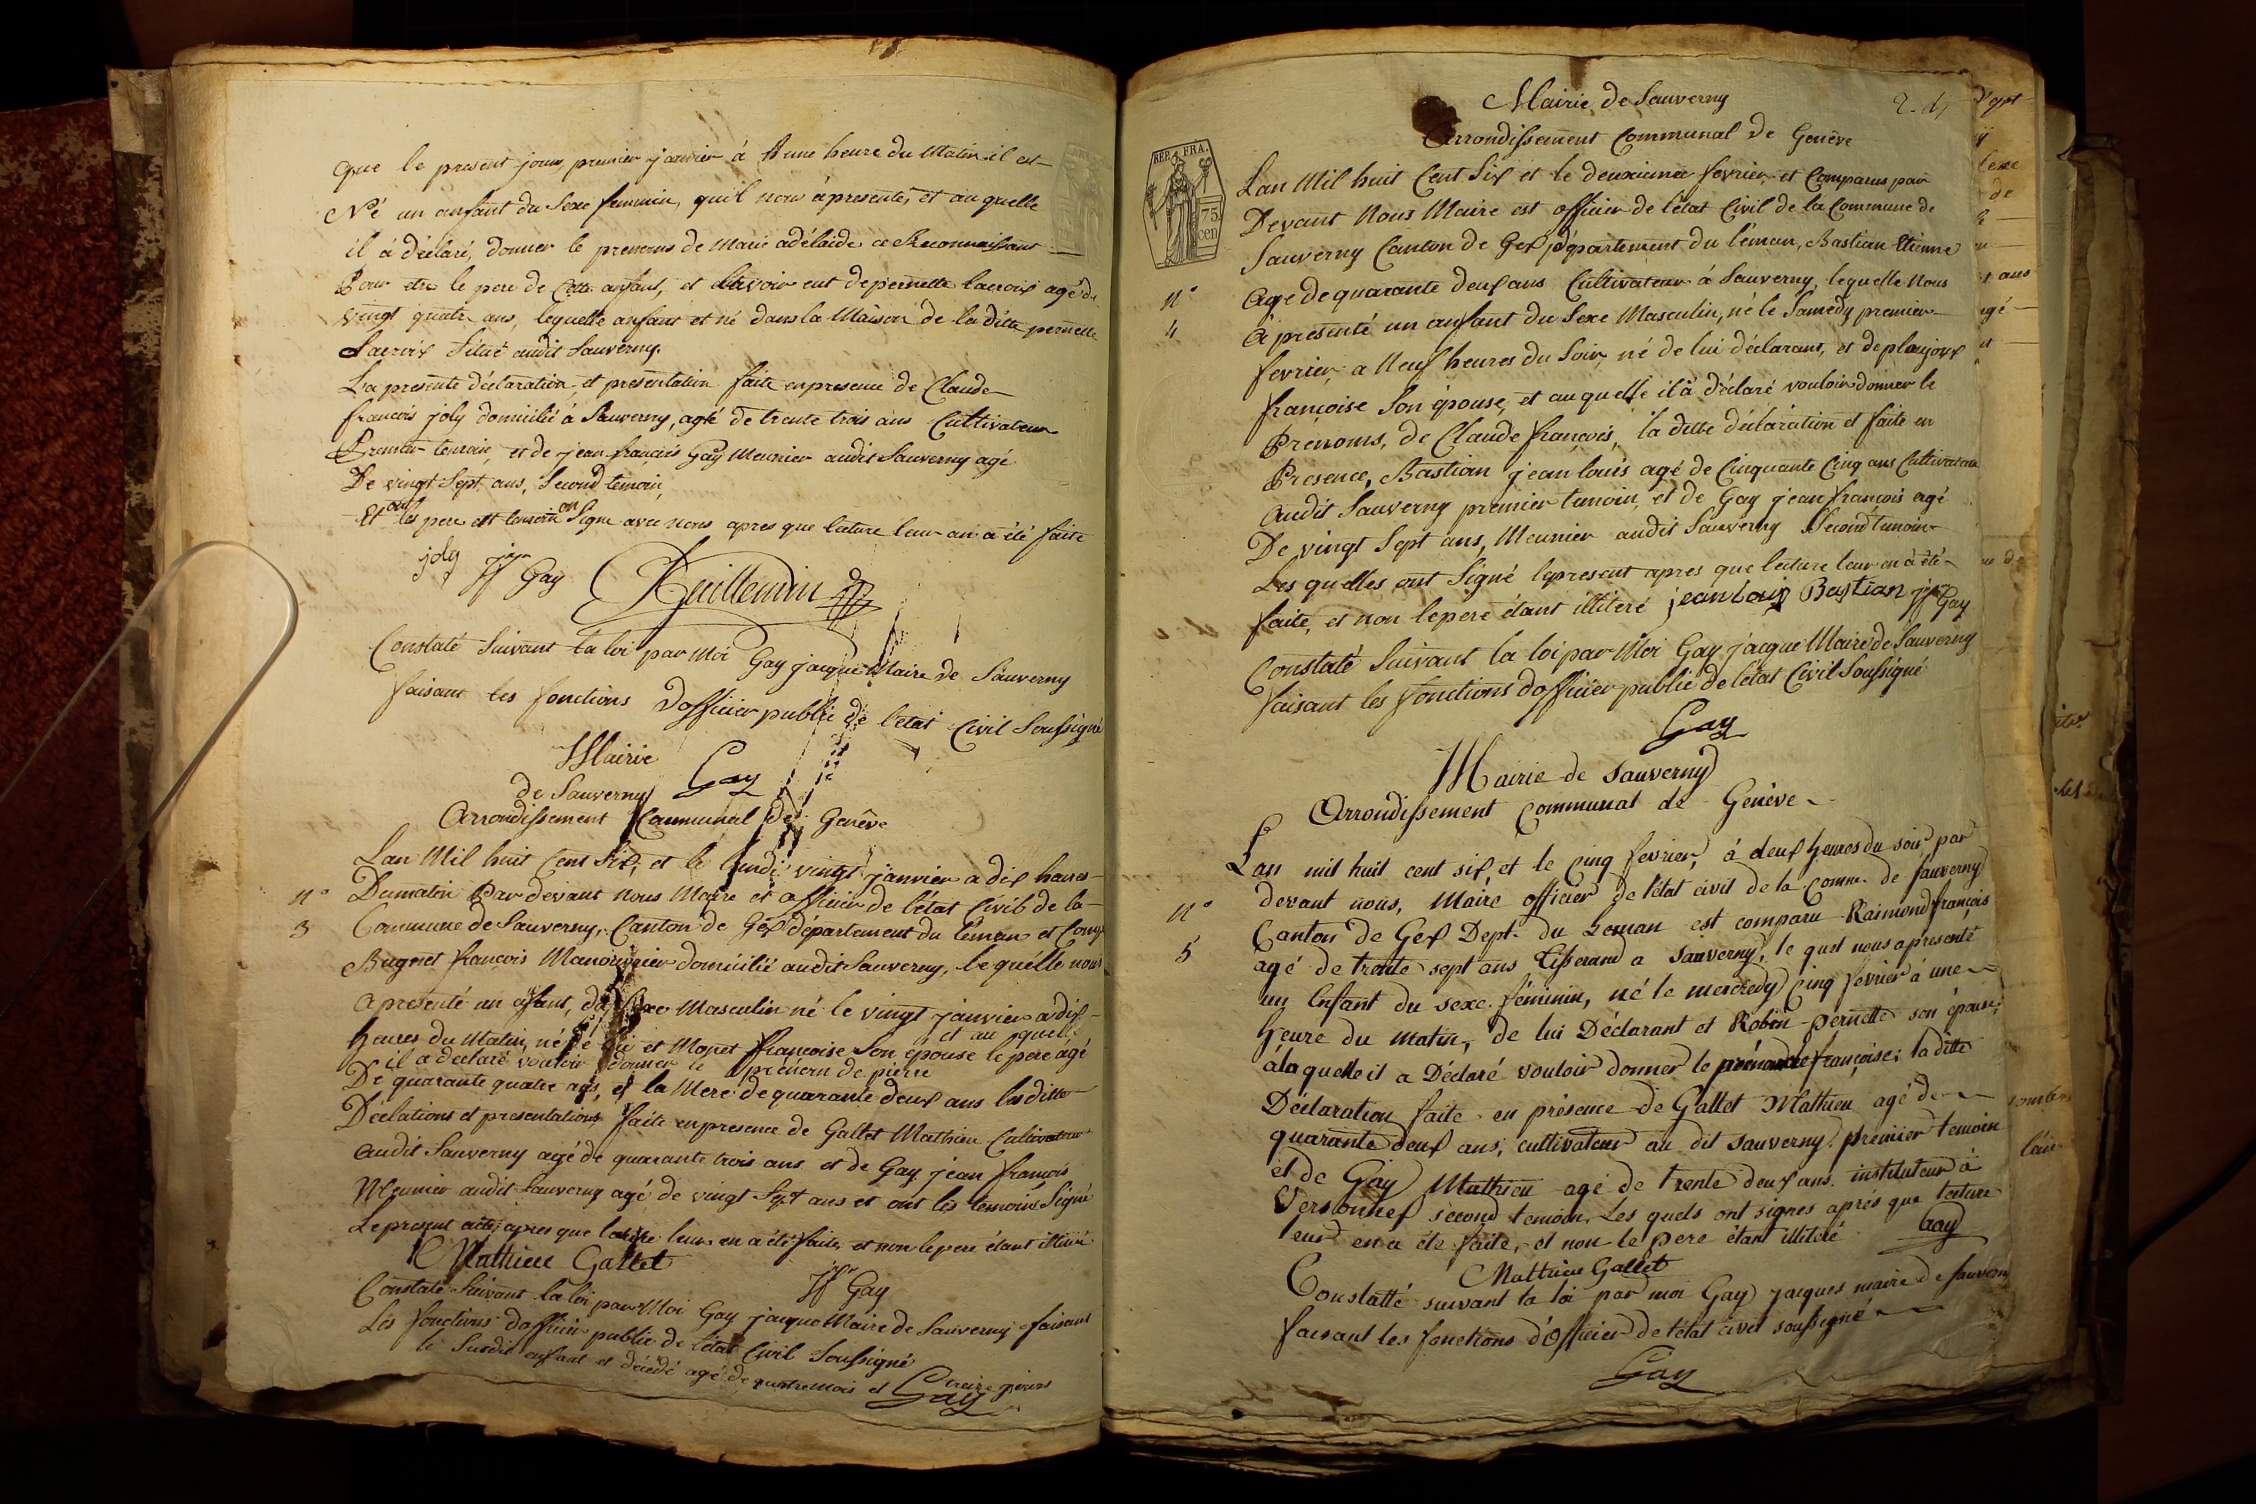 que le present jour, premier janvier à une heure du Matin il est
Né un anfant du Sexe feminin, qu'il nous à presenté, et au quelle
il à déclaré, donner le prenoms de Marie adélaïde ce Reconnaissant
Pour etre le pere de Cette anfant, et l'avoir eut de pernette lacroix agé de
vingt quatre ans, lequelle anfant et né dans la Maison de la ditte pernette
Lacroix Situé audit Sauverny.
La presente déclaration, et presentation faite en presence de Claude
francois joly domicilié à Sauverny, agé de trente trois ans Cultivateur
Premier temoin, et de jean francois Gay Meunier audit Sauverny agé
De vingt Sept ans, Second temoin,
Et les pere et temoin on Signe avec nous apres que lecture leur an a été faite
joly jf Gay
Constaté Suivant la loi par Moi Gay jacque Maire de Sauverny
faisant les fonctions d'officier public de l'état Civil Soussigné
Mairie
de Sauverny Gay
Arrondissement Communal de Genêve
Lan Mil huit Cent Six, et le lundi vingt janvier a dix heures
n° Dumatin Par devant nous Maire et officier de l'état Civil de la
3 Commune de Sauverny, Canton de Gex département du léman et Comp
Bugnet françois Manouvrier domicilié audit Sauverny, le quelle nous
a presenté un anfant, du Sexe Masculin né le vingt janvier a dix
heures du Matin, né de lui et Monet françoise Son épouse le pere agé
et au quel
il a declaré vouloir donner le prenom de pierre
De quarante quatre ans, et la Mere de quarante deux ans les ditte
Déclations et presentations faite en presence de Gallet Mathieu Cultivateur
audit Sauverny agé de quarante trois ans et de Gay jean francois
Meunier audit Sauverny agé de vingt Sept ans et ont les temoins Signé
Le present acte, apres que lecture leur en a été faite, et non le pere étant illitéré
Mathieu Gallet
jf Gay
Constaté Suivant la loi par Moi Gay jacque Maire de Sauverny faisant
Les fonctions d'officier public de l'état Civil Soussigné
le Susdit anfant et décédé agé de quatre mois et treize jours
Gay
Mairie de Sauverny
Arrondissement Communal de Genêve
REP. FRA.
75
cen
Lan Mil huit Cent Six et le deuxieme fevrier, et Comparus par
Devant Nous Maire est officier de l'état Civil de la Commune de
Sauverny Canton de Gex département du léman, Bastian Etienne
n° Age de quarante deux ans Cultivateur à Sauverny, lequelle Nous
4 à présenté un anfant du Sexe Masculin, né le Samedy premier
fevrier, a Neuf heures du Soir, né de lui déclarant, et de
françoise Son épouse, et au quelle il à déclaré vouloir donner le
Prénoms, de Claude françois, la ditte déclaration et faite en
Presence, Bastian jean louis agé de Cinquante Cinq ans Cultivateur
audit Sauverny premier temoin, et de Gay jean françois agé
De vingt Sept ans, Meunier audit Sauverny Second temoin
Les quelles ont Signé le present apres que lecture leur en à été
faite, et non le pere étant illiteré jean louis Bastian jf Gay
Constaté Suivant la loi par Moi Gay jacque Maire de Sauverny
faisant les fonctions d'officier public de l'état Civil Soussigné
Gay
Mairie de Sauverny
Arrondissement Communal de Genève
Lan mil huit cent six, et le cinq fevrier, à deux heures du soir par
n° devant nous, Maire officier de l'état civil de la Comm. de Sauverny
5 Canton de Gex Dept. du Leman est comparu Raimond françois
agé de trente sept ans Tisserand a Sauverny, le quel nous a presenté
un Enfant du sexe féminin, né le mercredy cinq février à une
heure du matin, de lui Déclarant et Robin Pernette son épouse;
à la quelle il a Déclaré vouloir donner le prénom de françoise; la ditte
Déclaration faite en présence de Gallet Mathieu agé de
quarante deux ans, cultivateur au dit Sauverny premier temoin
et de Gay Mathieu agé de trente deux ans, instituteur à
Versonnex second temoin. Les quels ont signes aprés que lecture
leur en a été faite, et non le pere étant illitéré Gay
Mathieu Gallet
Constatté suivant la loi par moi Gay jacques maire de Sauverny
faisant les fonctions d'Officier de l'état civil soussigné
Gay